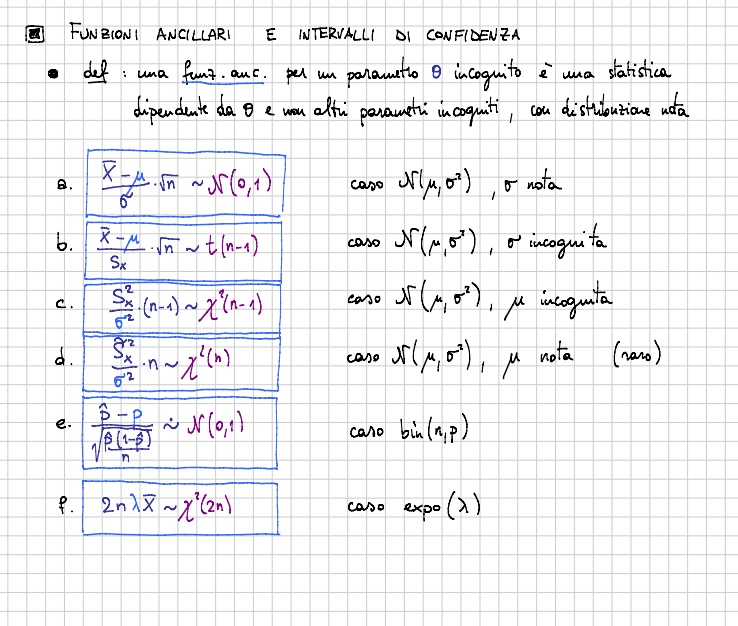 FUNZIONI ANCILLARI E INTERVALLI DI CONFIDENZA
• def : una funz. anc. per un parametro θ incognito è una statistica
dipendente da θ e non altri parametri incogniti, con distribuzione nota
a. (X̄ - μ)/σ · √n ~ N(0,1) caso N(μ, σ²), σ nota
b. (X̄ - μ)/Sₓ · √n ~ t(n-1) caso N(μ, σ²), σ incognita
c. Sₓ²/σ² · (n-1) ~ χ²(n-1) caso N(μ, σ²), μ incognita
d. S̃ₓ²/σ² · n ~ χ²(n) caso N(μ, σ²), μ nota (raro)
e. (p̂ - p)/√(p̂(1-p̂)/n) ~̇ N(0,1) caso bin(n,p)
f. 2nλX̄ ~ χ²(2n) caso expo(λ)